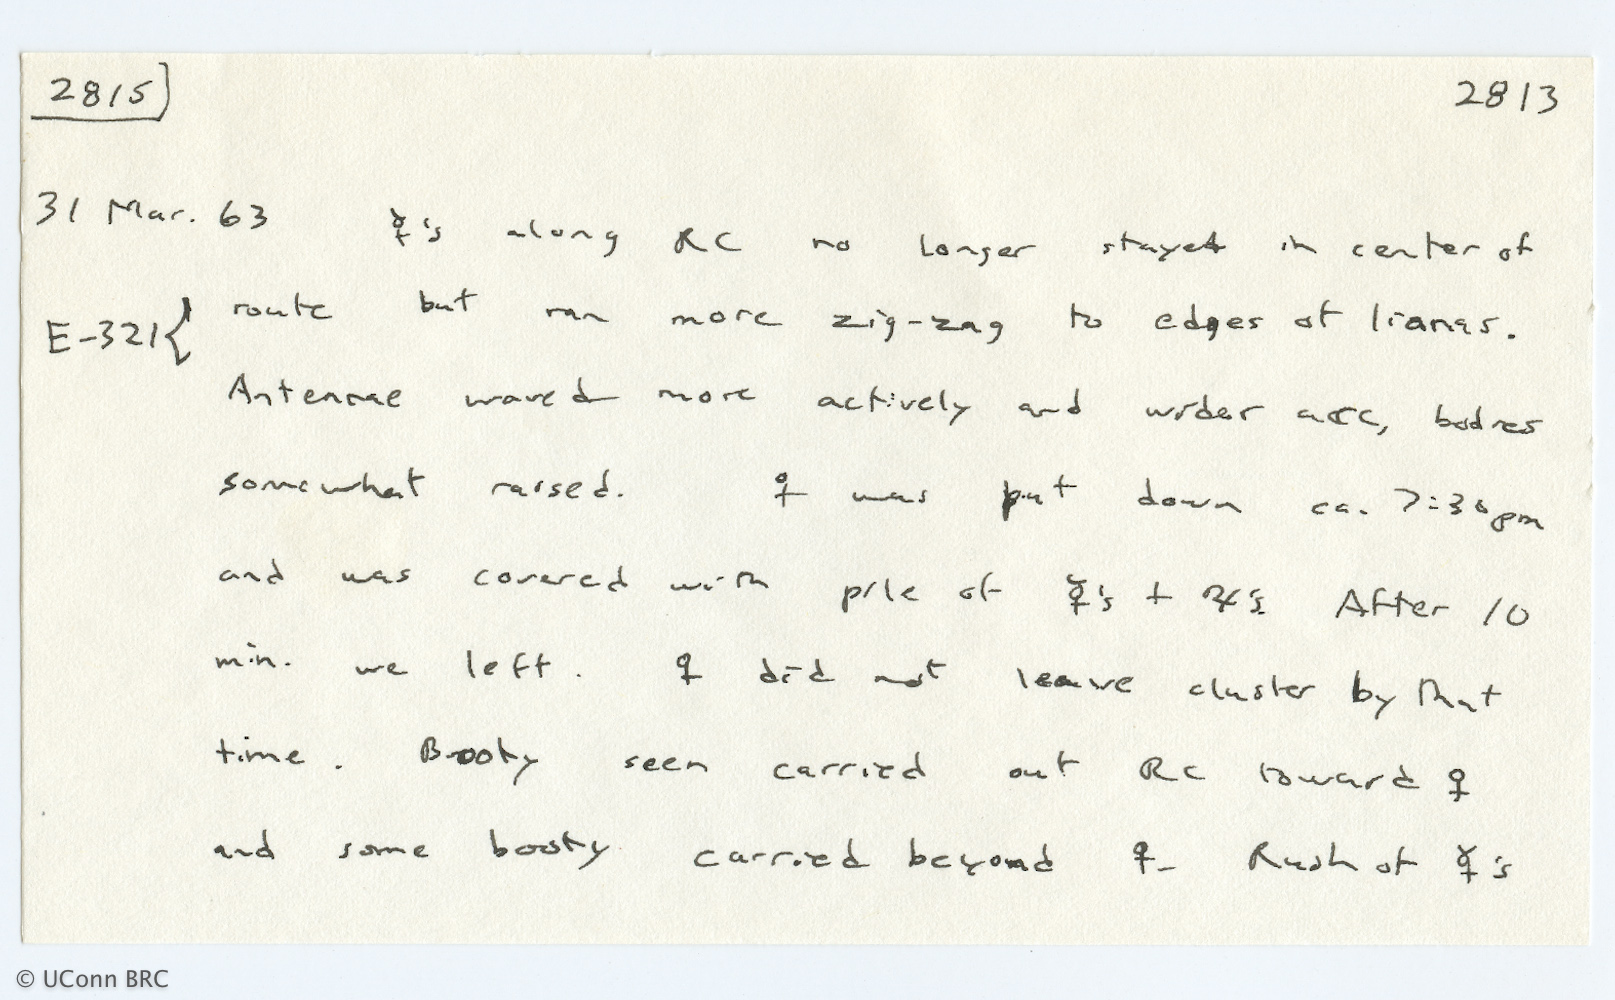 2815] 2813
31 Mar. 63 ☿'s along RC no longer stayed in center of
E-321{ route but ran more zig-zag to edges of lianas.
Antennae waved more actively and wider arc, bodies
somewhat raised. ♀ was put down ca. 7:30 pm
and was covered with pile of ☿'s + ♃'s. After 10
min. we left. ♀ did not leave cluster by that
time. Booty seen carried out RC toward ♀
and some booty carried beyond ♀. Rush of ☿'s
© UConn BRC